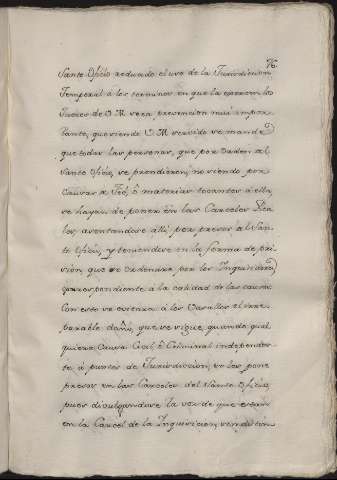 76.
Santo Oficio reducido el uso de la Jurisdicion
Temporal à los terminos en que la exercen los
Jueces de V.M. veea prevencion mui impor
tante, que siendo V.M. servido se mande
que todas las personas, que por orden del
Santo Oficio, se prendieren, no siendo por
Causas de Feé, ò materias tocantes à ella,
se hayan de poner en las Carceles Rea
les, asentandose alli por presos del San
to Oficio, y teniendose en la forma de pri
sion que se ordenare por los Inquisidores,
correspondiente à la calidad de las causas.
Con esto se evitará à los Vasallos el irre
parable daño, que se sigue quando qual
quiera Causa Civil, ò Criminal independien
te à puntos de Jurisdiccion, se les pone
presos en las Carceles del Santo Oficio,
pues divulgandose la voz de que están
en la Carcel de la Inquisicion, sin distin